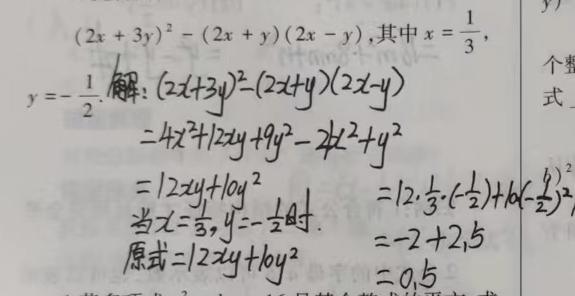 (2x + 3y)² - (2x + y)(2x - y),其中 x = 1/3,
y = - 1/2.
解: (2x+3y)²-(2x+y)(2x-y)
=4x²+12xy+9y²-4x²+y²
=12xy+10y²
当x=1/3,y=-1/2时.
原式=12xy+10y²
=12·1/3·(-1/2)+10(-1/2)²
=-2+2.5
=0.5
y)
个整
式